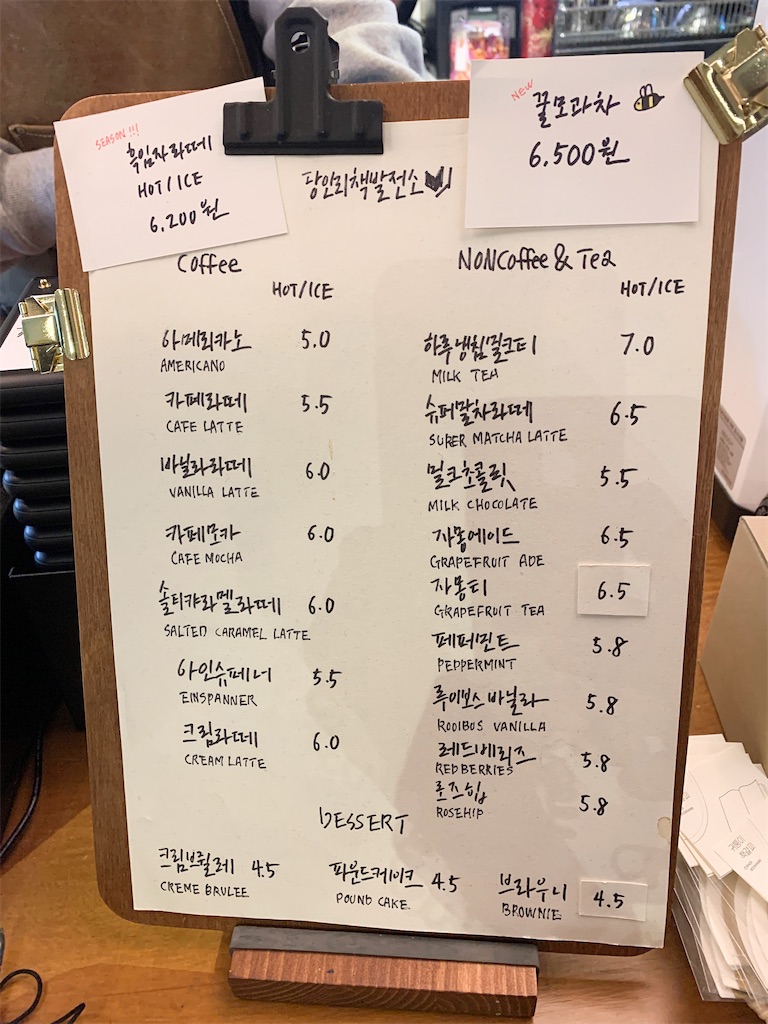 SEASON!!!
흑임자라떼
HOT/ICE
6,200원
NEW
꿀모과차
6.500원
당인리책발전소
Coffee
HOT/ICE
아메리카노 5.0
AMERICANO
카페라떼 5.5
CAFE LATTE
바닐라라떼 6.0
VANILLA LATTE
카페모카 6.0
CAFE MOCHA
솔티캬라멜라떼 6.0
SALTED CARAMEL LATTE
아인슈페너 5.5
EINSPANNER
크림라떼 6.0
CREAM LATTE
NONCoffee & Tea
HOT/ICE
하루냉침밀크티 7.0
MILK TEA
슈퍼말차라떼 6.5
SUPER MATCHA LATTE
밀크초콜릿 5.5
MILK CHOCOLATE
자몽에이드 6.5
GRAPEFRUIT ADE
자몽티 6.5
GRAPEFRUIT TEA
페퍼민트 5.8
PEPPERMINT
루이보스바닐라 5.8
ROOIBUS VANILLA
레드베리즈 5.8
RED BERRIES
로즈힙 5.8
ROSEHIP
DESSERT
크림브륄레 4.5
CREME BRULEE
파운드케이크 4.5
POUND CAKE
브라우니 4.5
BROWNIE